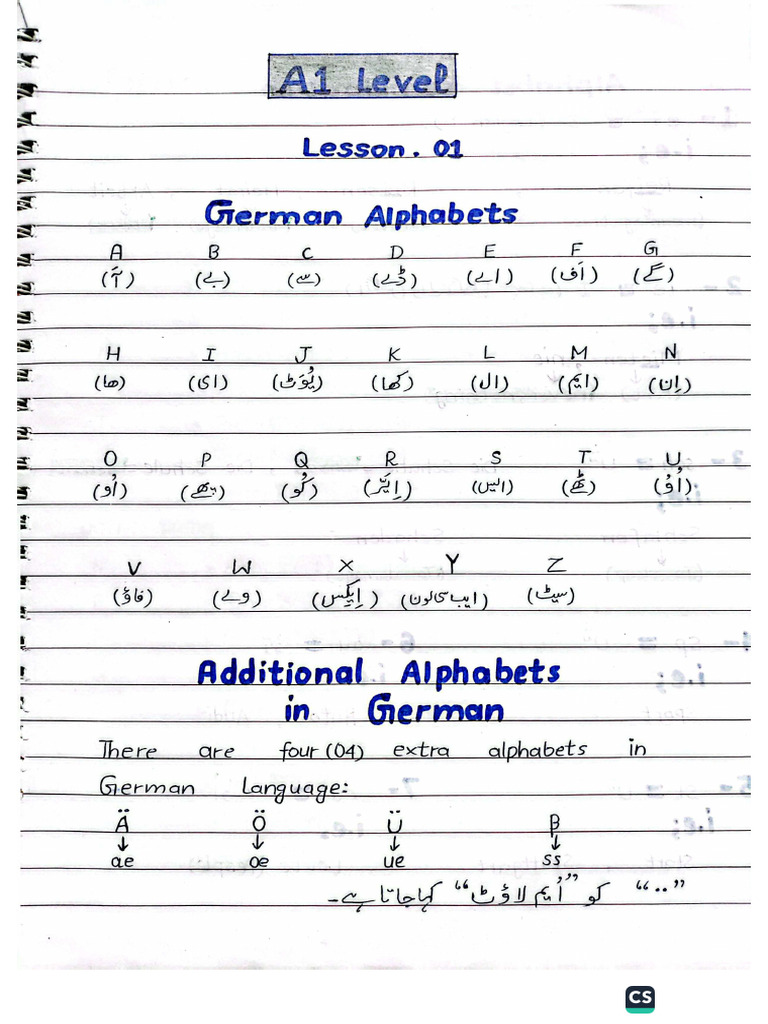 A1 Level
Lesson. 01
German Alphabets
A B C D E F G
(آ) (بے) (سے) (ڈے) (اے) (اَف) (گے)
H I J K L M N
(ھا) (ای) (یُوَٹ) (کھا) (ال) (ایم) (اِن)
O P Q R S T U
(اُو) (پھے) (کُو) (اِیَّر) (ایس) (ٹھے) (اُوُ)
V W X Y Z
(فاؤ) (وے) (اِیکِس) (ایپ سی لون) (سیٹ)
Additional Alphabets
in German
There are four (04) extra alphabets in
German Language:
Ä Ö Ü β
↓ ↓ ↓ ↓
ae oe ue ss
“..” کو ”اُیم لاؤٹ“ کہا جاتا ہے۔
CS